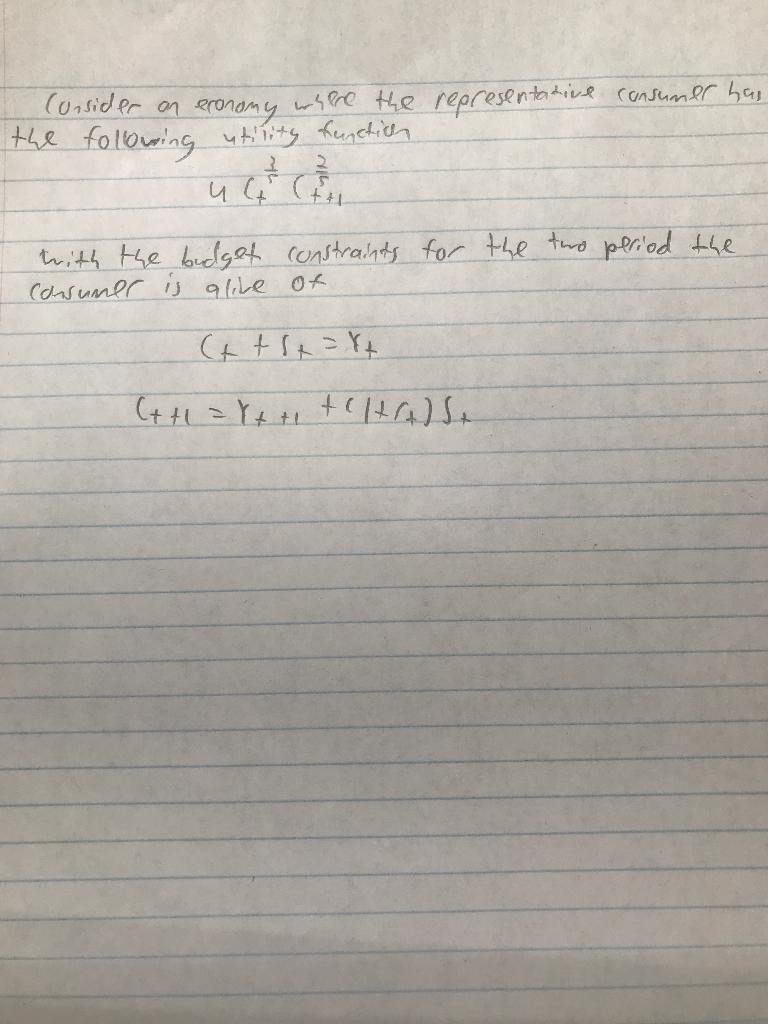 Consider an economy where the representative consumer has
the following utility function
u C_t^{3/5} C_{t+1}^{2/5}
with the budget constraints for the two period the
consumer is alive of
C_t + S_t = Y_t
C_{t+1} = Y_{t+1} + (1+r_t) S_t